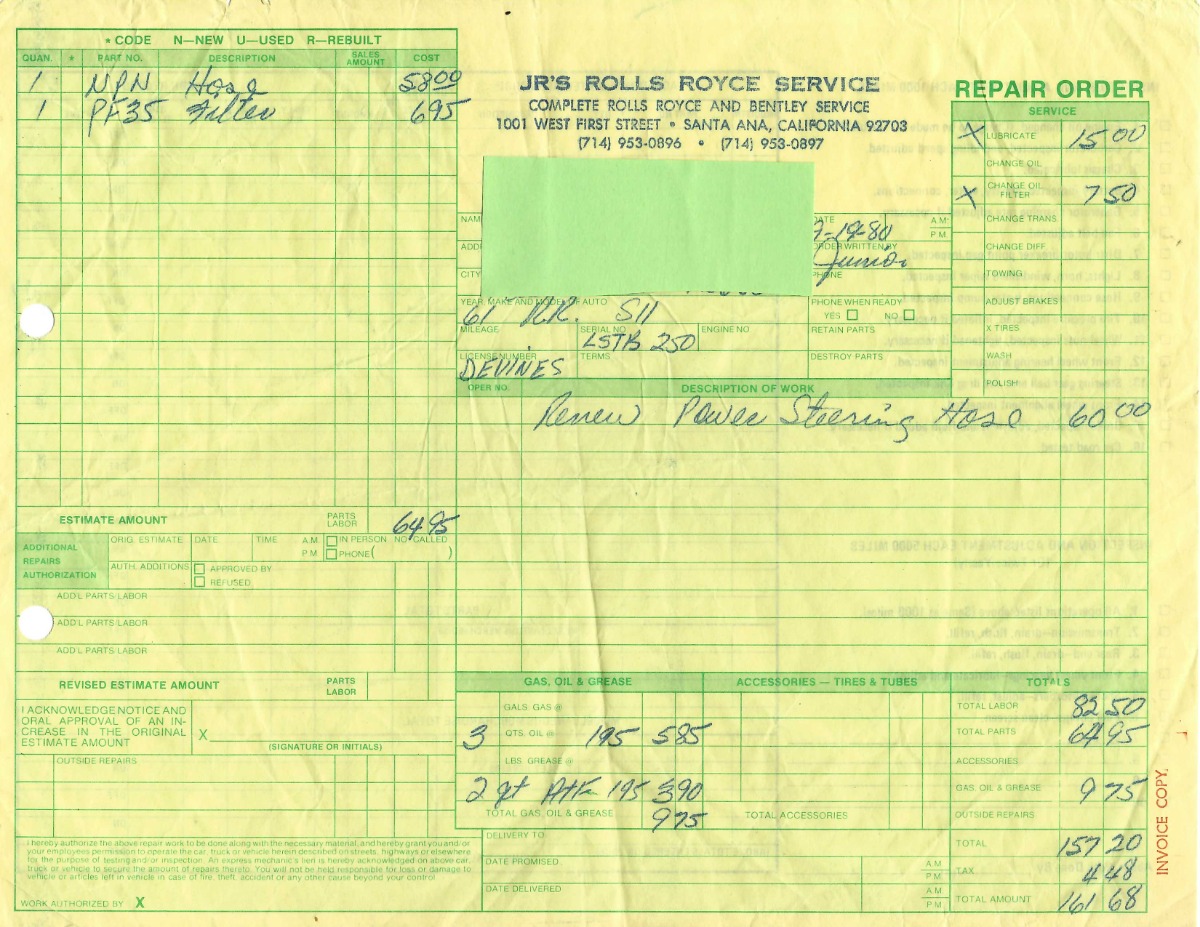 * CODE N—NEW U—USED R—REBUILT
QUAN. * PART NO. DESCRIPTION SALES AMOUNT COST
1 NPN Hose 58 00
1 PF35 Filter 6 95
JR'S ROLLS ROYCE SERVICE
COMPLETE ROLLS ROYCE AND BENTLEY SERVICE
1001 WEST FIRST STREET • SANTA ANA, CALIFORNIA 92703
(714) 953-0896 • (714) 953-0897
REPAIR ORDER
SERVICE
X LUBRICATE 15 00
CHANGE OIL
X CHANGE OIL FILTER 7 50
CHANGE TRANS
CHANGE DIFF
TOWING
ADJUST BRAKES
X TIRES
WASH
POLISH
NAM
ADD
CITY
DATE -19-80 A.M. P.M.
ORDER WRITTEN BY Junior
PHONE
YEAR, MAKE AND MODEL OF AUTO
61 R.R. S11
PHONE WHEN READY
YES NO
MILEAGE SERIAL NO ENGINE NO RETAIN PARTS
LSTB 250
LICENSE NUMBER TERMS DESTROY PARTS
DEVINES
OPER NO. DESCRIPTION OF WORK
Renew Power Steering Hose 60 00
ESTIMATE AMOUNT PARTS LABOR 64 95
ADDITIONAL REPAIRS AUTHORIZATION
ORIG. ESTIMATE DATE TIME A.M. P.M. IN PERSON NO CALLED
PHONE ( )
AUTH. ADDITIONS APPROVED BY
REFUSED
ADD'L PARTS/LABOR
ADD'L PARTS/LABOR
ADD'L PARTS/LABOR
REVISED ESTIMATE AMOUNT PARTS LABOR
I ACKNOWLEDGE NOTICE AND
ORAL APPROVAL OF AN IN-
CREASE IN THE ORIGINAL
ESTIMATE AMOUNT
X
(SIGNATURE OR INITIALS)
OUTSIDE REPAIRS
I hereby authorize the above repair work to be done along with the necessary material, and hereby grant you and/or
your employees permission to operate the car, truck or vehicle herein described on streets, highways or elsewhere
for the purpose of testing and/or inspection. An express mechanic's lien is hereby acknowledged on above car,
truck or vehicle to secure the amount of repairs thereto. You will not be held responsible for loss or damage to
vehicle or articles left in vehicle in case of fire, theft, accident or any other cause beyond your control.
WORK AUTHORIZED BY X
GAS, OIL & GREASE
GALS. GAS @
3 QTS. OIL @ 195 5 85
LBS. GREASE @
2 qt 195 3 90
TOTAL GAS, OIL & GREASE 9 75
ACCESSORIES — TIRES & TUBES
TOTAL ACCESSORIES
DELIVERY TO
DATE PROMISED A.M. P.M.
DATE DELIVERED A.M. P.M.
TOTALS
TOTAL LABOR 82 50
TOTAL PARTS 64 95
ACCESSORIES
GAS, OIL & GREASE 9 75
OUTSIDE REPAIRS
TOTAL 157 20
TAX 4 48
TOTAL AMOUNT 161 68
INVOICE COPY.